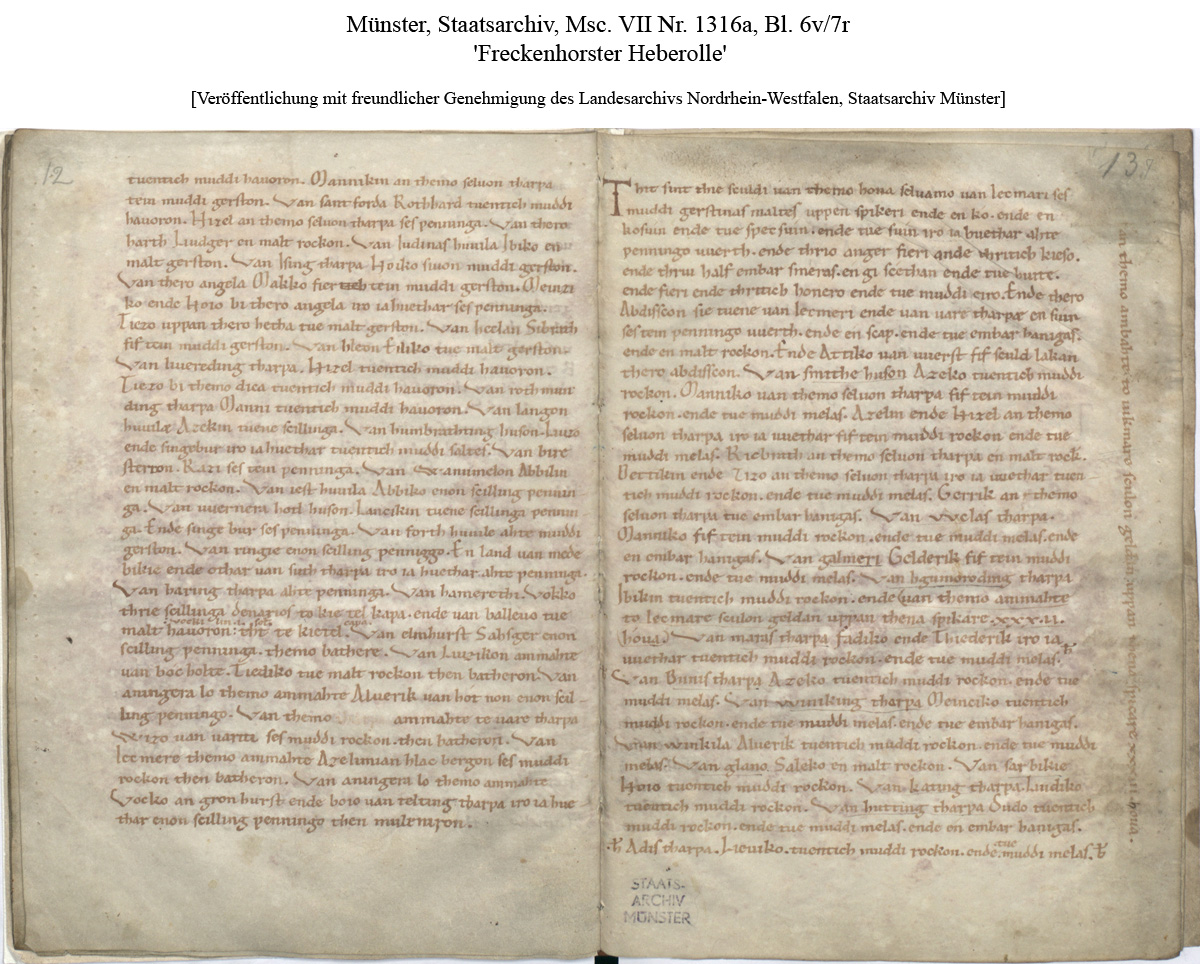 Münster, Staatsarchiv, Msc. VII Nr. 1316a, Bl. 6v/7r
'Freckenhorster Heberolle'
[Veröffentlichung mit freundlicher Genehmigung des Landesarchivs Nordrhein-Westfalen, Staatsarchiv Münster]
12
tuentich muddi hauoron. Mannikin an themo seluon tharpa
tein muddi gerston. Van santforda Rothhard tuentich muddi
hauoron. Hizel an themo seluon tharpa ses penninga. Van thero
harth Liudger en malt rockon. Van Iudinas huuila Ibiko en
malt gerston. Van Ising tharpa Hoiko siuon muddi gerston.
Van thero angela Makko fier tein muddi gerston. Meinzi
ko ende Hoio bi thero angela iro ia huethar ses penninga.
Tiezo uppan thero hetha tue malt gerston. Van heclan Sibrath
fif tein muddi gerston. Van bleon Eiliko tue malt gerston.
Van liuereding tharpa. Hizel tuentich muddi hauoron.
Tiezo bi themo dica tuentich muddi hauoron. Van rothmun
ding tharpa Manni tuentich muddi hauoron. Van langon
huuilæ Azekin tuene scillinga. Van humbrathting huson Liuzo
ende singebur iro ia huethar tuentich muddi saltes. Van bire
sterron. Razi ses tein penninga. Van Abbilin
en malt rockon. Van iest huuila Abbiko enon scilling pennin
ga. Van uuernera holt huson. Lanzikin tuene scillinga pennin
ga. Ende singe bur ses penninga. Van forth huuile ahte muddi
gerston. Van ringie enon scilling penniggo. En land van mede
bikie ende othar van suth tharpa iro ia huethar ahte penninga.
Van haring tharpa ahte penninga. Van hamerethi Vokko
thrie scillinga denarios to kietel kapa. ende van balleuo tue
malt hauoron: tht te kietel capa. Van elmhurst Sahsger enon
scilling penninga. themo bathere. Van Luzikon ammahte
van bocholte. Tiediko tue malt rockon then batheron. Van
aningera lo themo ammahte Aluerik van hotnon enon scil
ling penningo. Van themo ammahte te uare tharpa
Wizo van uartte ses muddi rockon. then batheron. Van
lecmere themo ammahte Azelinian hlac bergon ses muddi
rockon then batheron. Van aningera lo themo ammahte
Vocko an gronhurst ende boio van telting tharpa iro ia hue
thar enon scilling penningo then mulinjron.
13
Thit sint thie sculdi van themo houa seluamo van lecmari ses
muddi gerstinas maltes uppen spikeri ende en ko. ende en
kosuin ende tue spetsuin. ende tue suin iro ia huethar ahte
penningo uuerth. ende thrio anger fieri ande thritich kieso.
ende thriu half embar smeras. en gi scethan ende tue hutte.
ende fieri ende thritich honero ende tue muddi eiro. Ende thero
Abdisscon sie tuene van lecmeri ende van uare tharpæ en suin
ses tein penningo uuerth. ende en scap. ende tue embar hanigas.
ende en malt rockon. Ende Attiko van uuerst fif sculd lakan
thero abdisscon. Van smithe huson Azeko tuentich muddi
rockon. Manniko van themo seluon tharpa fif tein muddi
rockon. ende tue muddi melas. Azelin ende Hizel an themo
seluon tharpa iro ia uuethar fif tein muddi rockon ende tue
muddi melas. Ricbrath an themo seluon tharpa en malt rock.
Bettikin ende Tizo an themo seluon tharpa iro ia uuethar tuen
tich muddi rockon. ende tue muddi melas. Gerrik an themo
seluon tharpa tue embar hanigas. Van vvelas tharpa.
Manniko fif tein muddi rockon. ende tue muddi melas. ende
en embar hanigas. Van galmeri Gelderik fif tein muddi
rockon. ende tue muddi melas. Van haumoreding tharpa
Ibikin tuentich muddi rockon. ende van themo ammahte
to lecmare sculon geldan uppan thena spikare. xxxii.
houa. Van maras tharpa Fadiko ende Thiederik iro ia
uuethar tuentich muddi rockon. ende tue muddi melas.
Van Bunistharpa Azeko tuentich muddi rockon. ende tue
muddi melas. Van uuiuiking tharpa Meinciko tuentich
muddi rockon. ende tue muddi melas. ende tue embar hanigas.
Van winkila Aluerik tuentich muddi rockon. ende tue muddi
melas. Van glano. Saleko en malt rockon. Van sarbikie
Hoio tuentich muddi rockon. Van kating tharpa. Lindiko
tuentich muddi rockon. Van hutting tharpa Dudo tuentich
muddi rockon. ende tue muddi melas. ende en embar hanigas.
Adistharpa. Lieuiko. tuentich muddi rockon. ende tue muddi melas.
an themo ammahte to lecmare sculon geldan uppan thena spicare xxxii houa.
STAATS-
ARCHIV
MÜNSTER